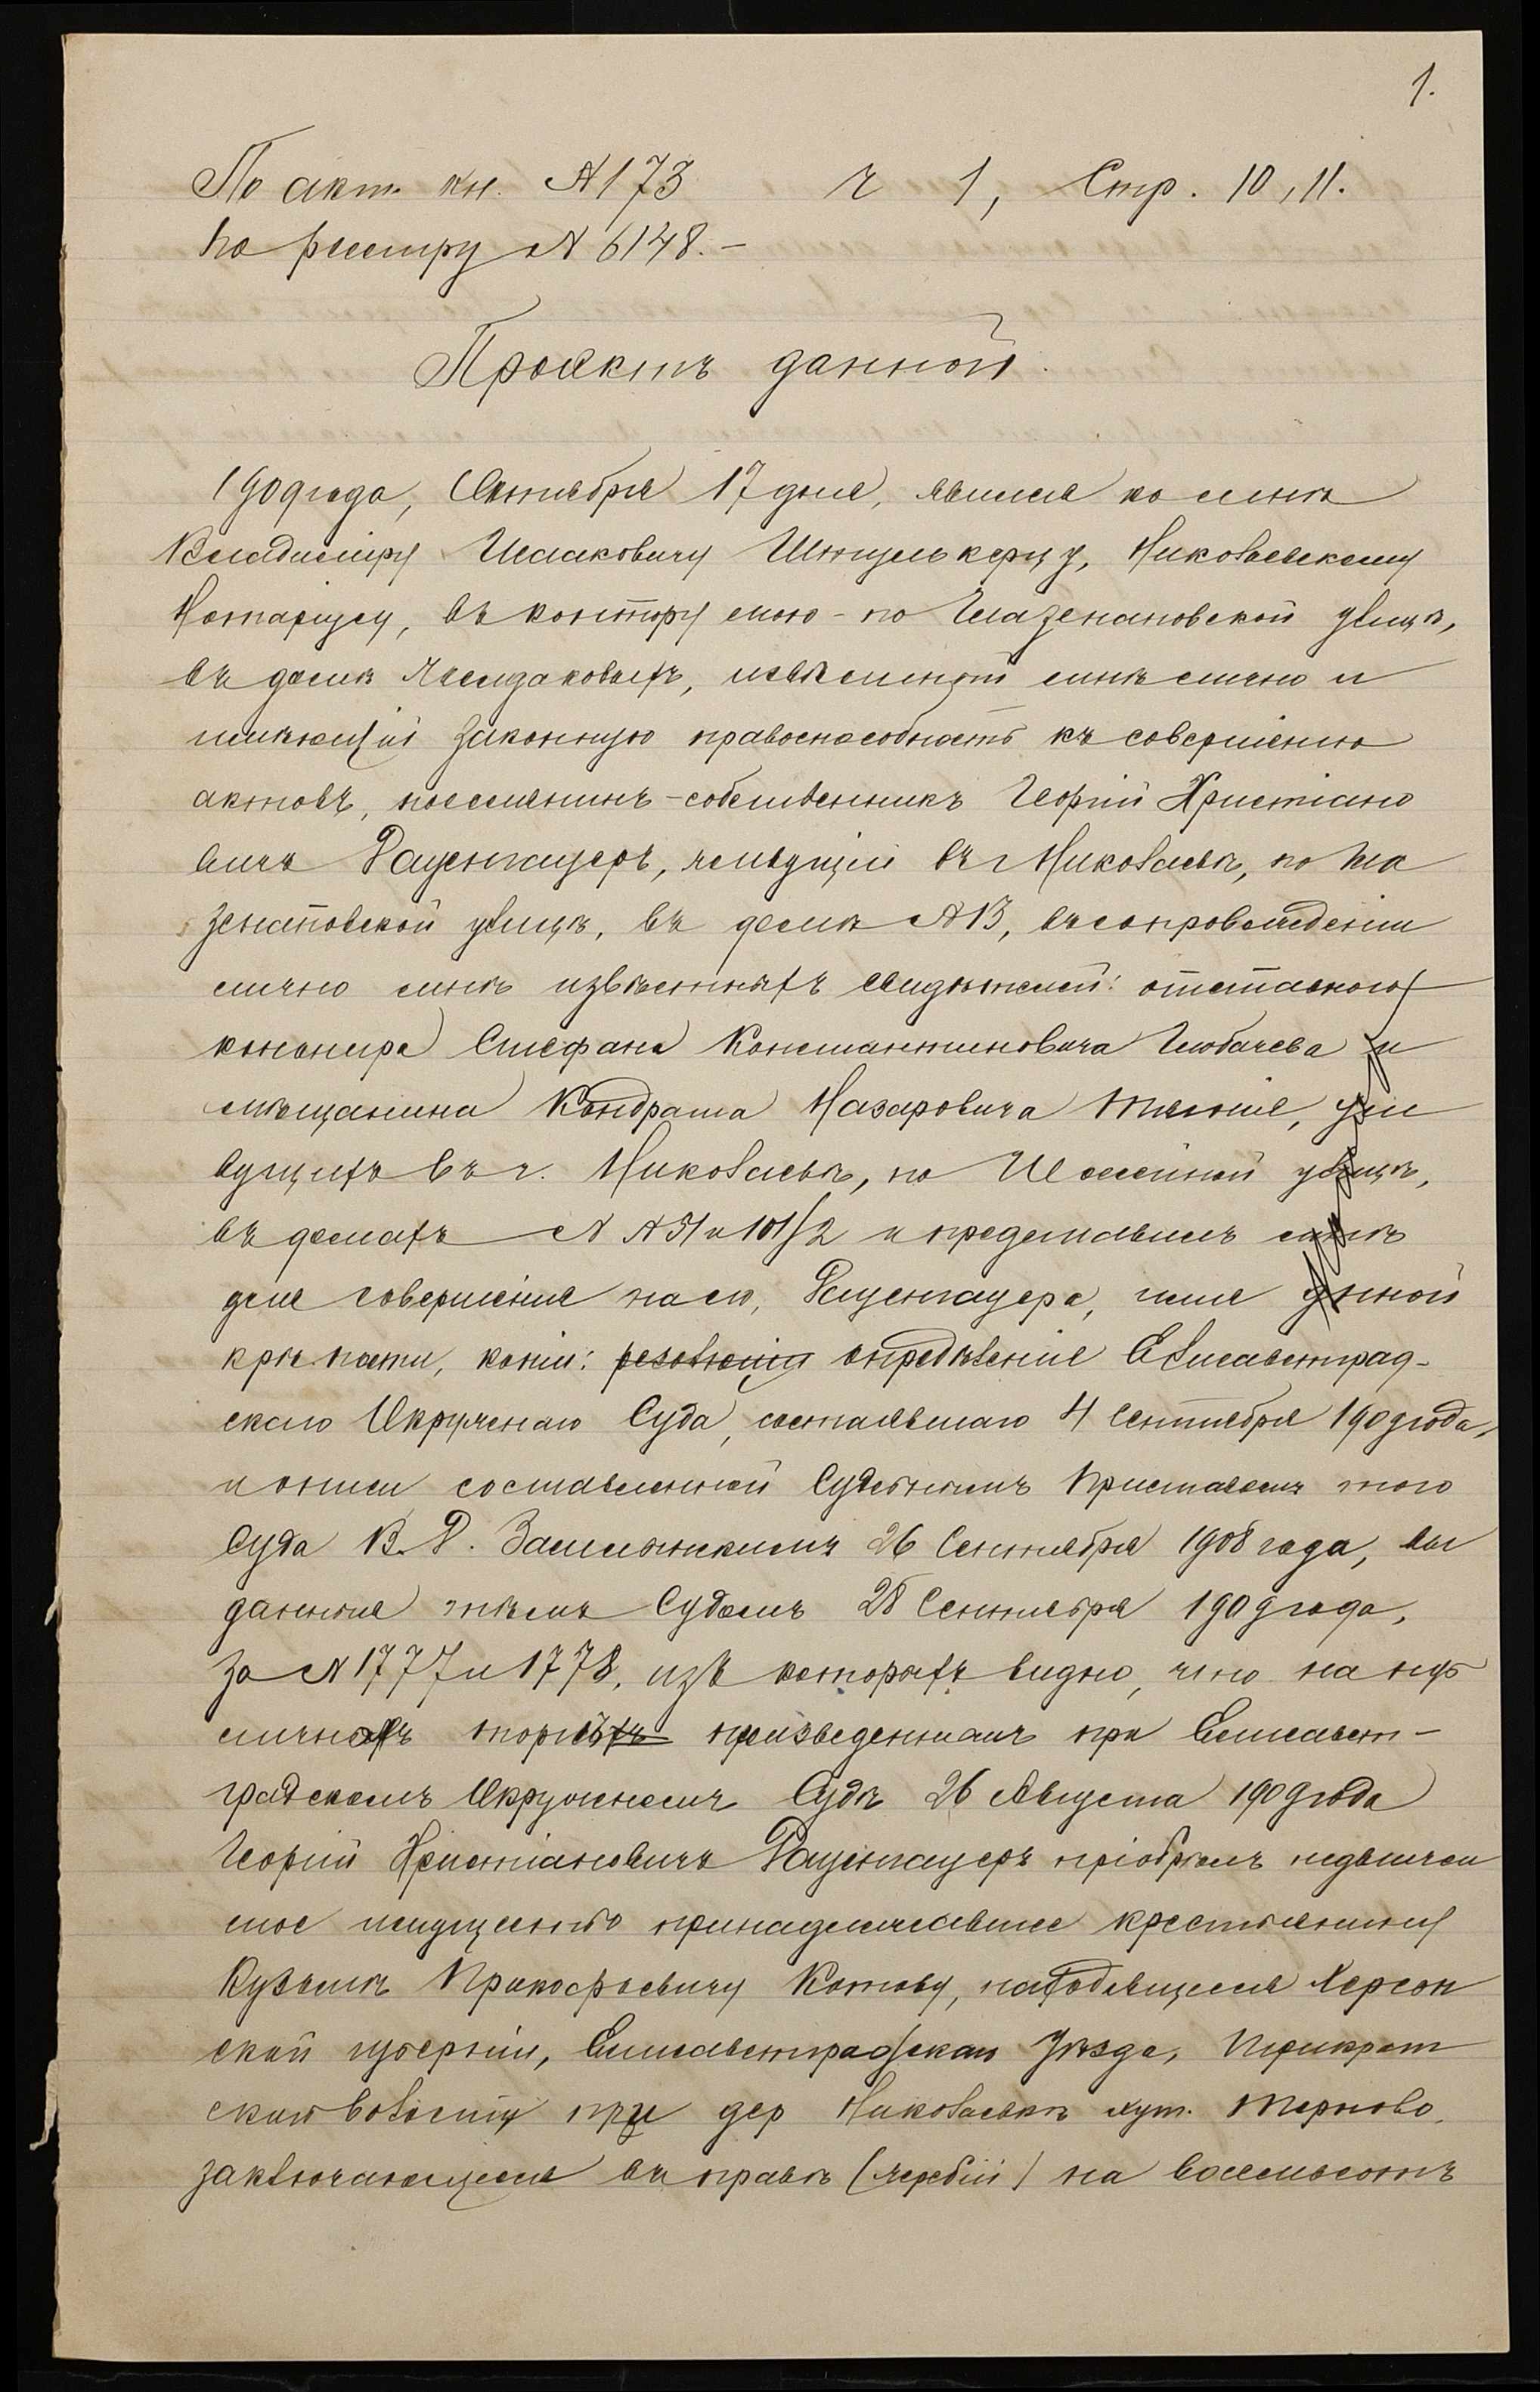 1.
По акт. кн. № 173 ч 1, Стр. 10, 11.
По реестру № 6148. –
Проэктъ данной.
1909 года, Октября 17 дня, явился ко мнѣ
Владиміру Исааковичу Николаевскому
Нотаріусу, въ контору мою - по Глазенаповской улицѣ,
въ домѣ извѣстный мнѣ лично и
имѣющій законную правоспособность къ совершенію
актовъ, поселянинъ-собственникъ Георгій Христіано
вичъ Раценгауеръ, живущій въ г. Николаевѣ, по Гла
зенаповской улицѣ, въ домѣ № 13, въ сопровожденіи
лично мнѣ извѣстныхъ свидѣтелей: отставного
канонира Стефана Константиновича и
мѣщанина Кондрата Назаровича жи
вущихъ въ г. Николаевѣ, по улицѣ,
въ домахъ № № 51 и 101/2 и представилъ мнѣ
для совершенія на его, Раценгауера, имя данной
крѣпости, копіи: резолюція опредѣленіе Елисаветград-
скаго Окружнаго Суда, состоявшаго 4 Сентября 1909 года,
и описи составленной Судебнымъ Приставомъ того
Суда В. Р. 26 Сентября 1908 года, вы
данныя тѣмъ Судомъ 28 Сентября 1909 года,
за № 1777 и 1778, изъ которыхъ видно, что на пуб
личномъ торгѣ произведенномъ при Елисавет-
градскомъ Окружномъ Судѣ 26 Августа 1909 года
Георгій Христіановичъ Раценгауеръ пріобрѣлъ недвижи
мое имущество принадлежавшее крестьянину
Кузьмѣ Прокофьевичу Котову, находящееся Херсон
ской губерніи, Елисаветградскаго Уѣзда,
волости при дер Николаевкѣ хут. Терново,
заключающееся въ правѣ (жеребій) на восемьсотъ